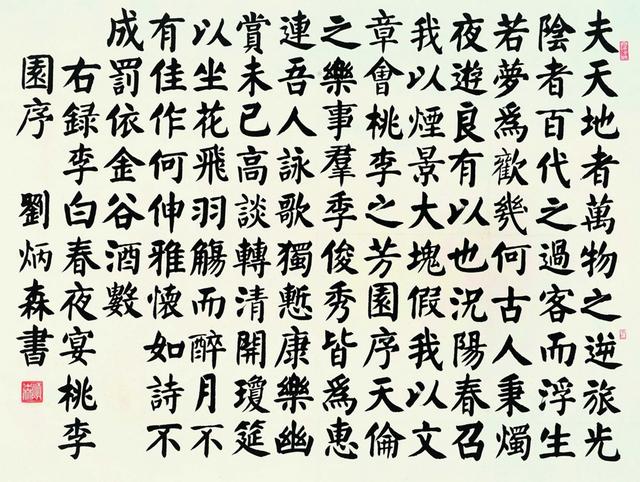 夫天地者萬物之逆旅光
陰者百代之過客而浮生
若夢爲歡幾何古人秉燭
夜遊良有以也況陽春召
我以煙景大塊假我以文
章會桃李之芳園序天倫
之樂事羣季俊秀皆爲惠
連吾人詠歌獨慙康樂幽
賞未已高談轉清開瓊筵
以坐花飛羽觴而醉月不
有佳作何伸雅懷如詩不
成罰依金谷酒數
右録李白春夜宴桃李
園序 劉炳森書